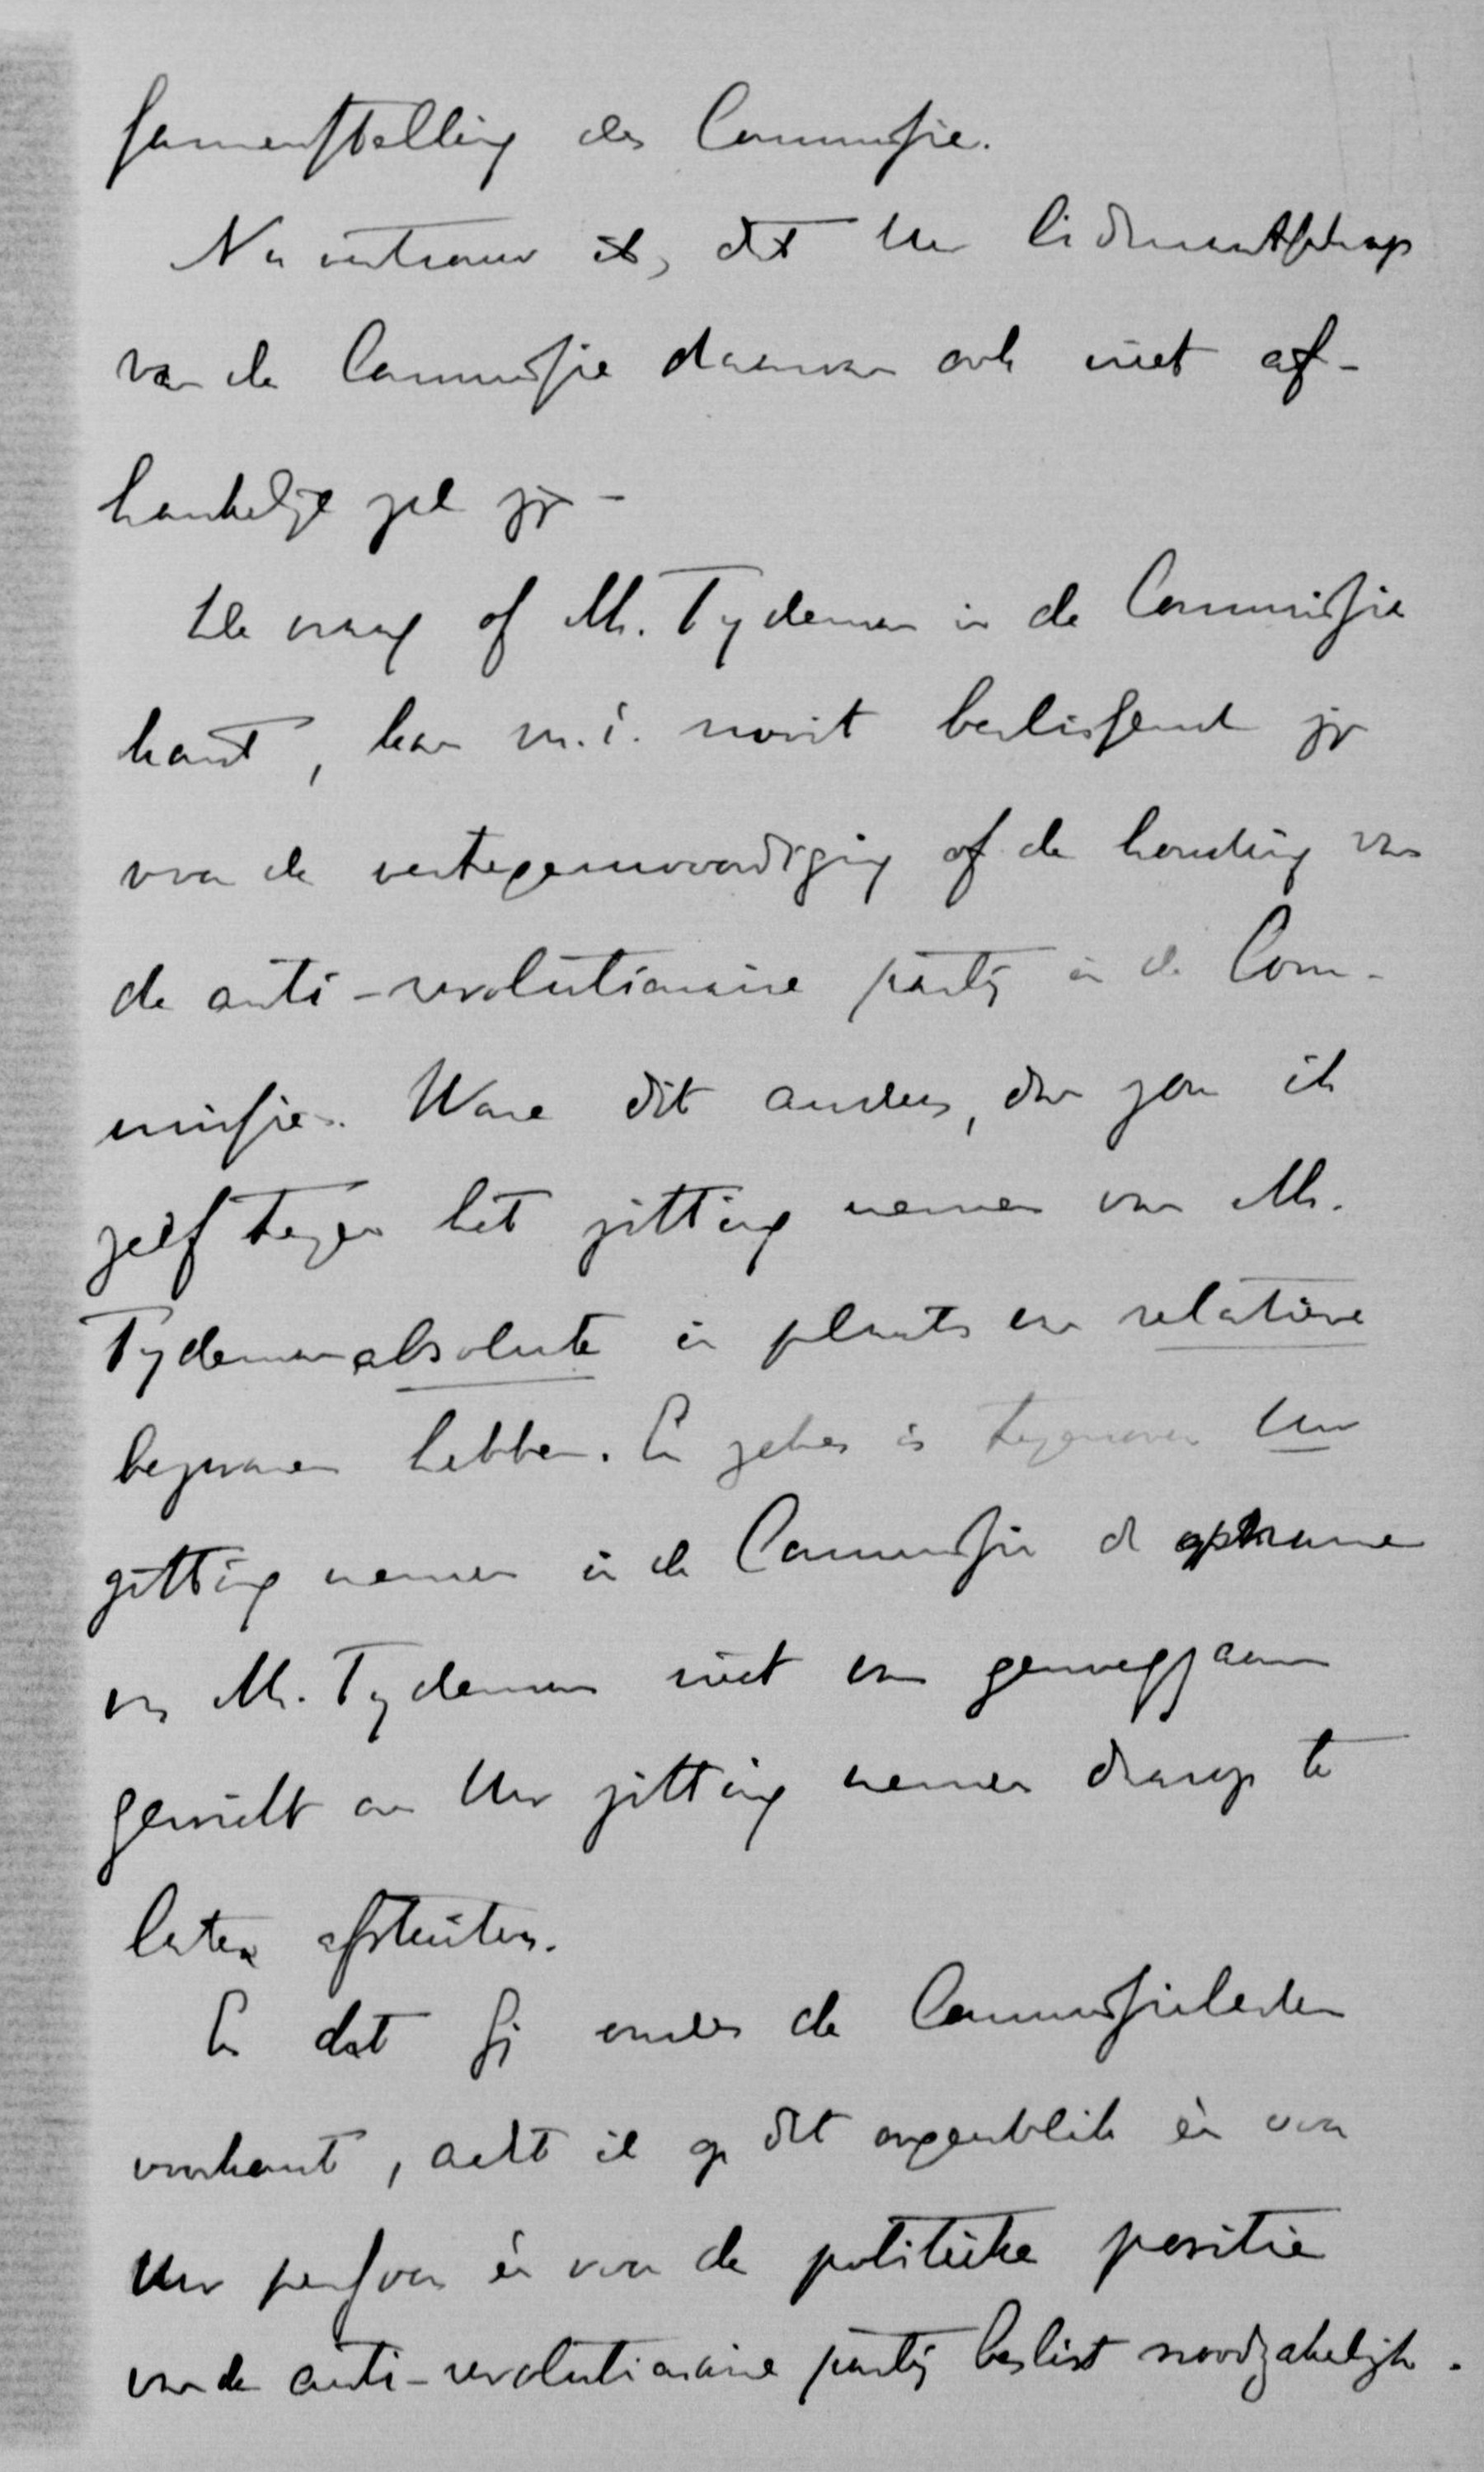 samenstelling der Commissie.
Nu vertrouw ik, dat Uw lidmaatschap
van de Commissie daarvan ook niet af-
hankelijk zal zijn -
De vraag of Mr. Tydeman in de Commissie
komt, kan m.i. nooit beslissend zijn
voor de vertegenwoordiging of de houding van
de anti-revolutionaire partij in de Com-
missie. Ware dit anders, dan zou ik
zelf tegen het zitting nemen van Mr.
Tydeman absolute in plaats van relatieve
bezwaren hebben. En zeker is tegenover Uw
zitting nemen in de Commissie de opname
van Mr. Tydeman niet van genoegzaam
gewicht om Uw zitting nemen daarop te
laten afstuiten.
En dat Gij onder de Commissieleden
voorkomt, acht ik op dit oogenblik èn voor
Uw persoon èn voor de politieke positie
van de anti-revolutionaire partij beslist noodzakelijk.